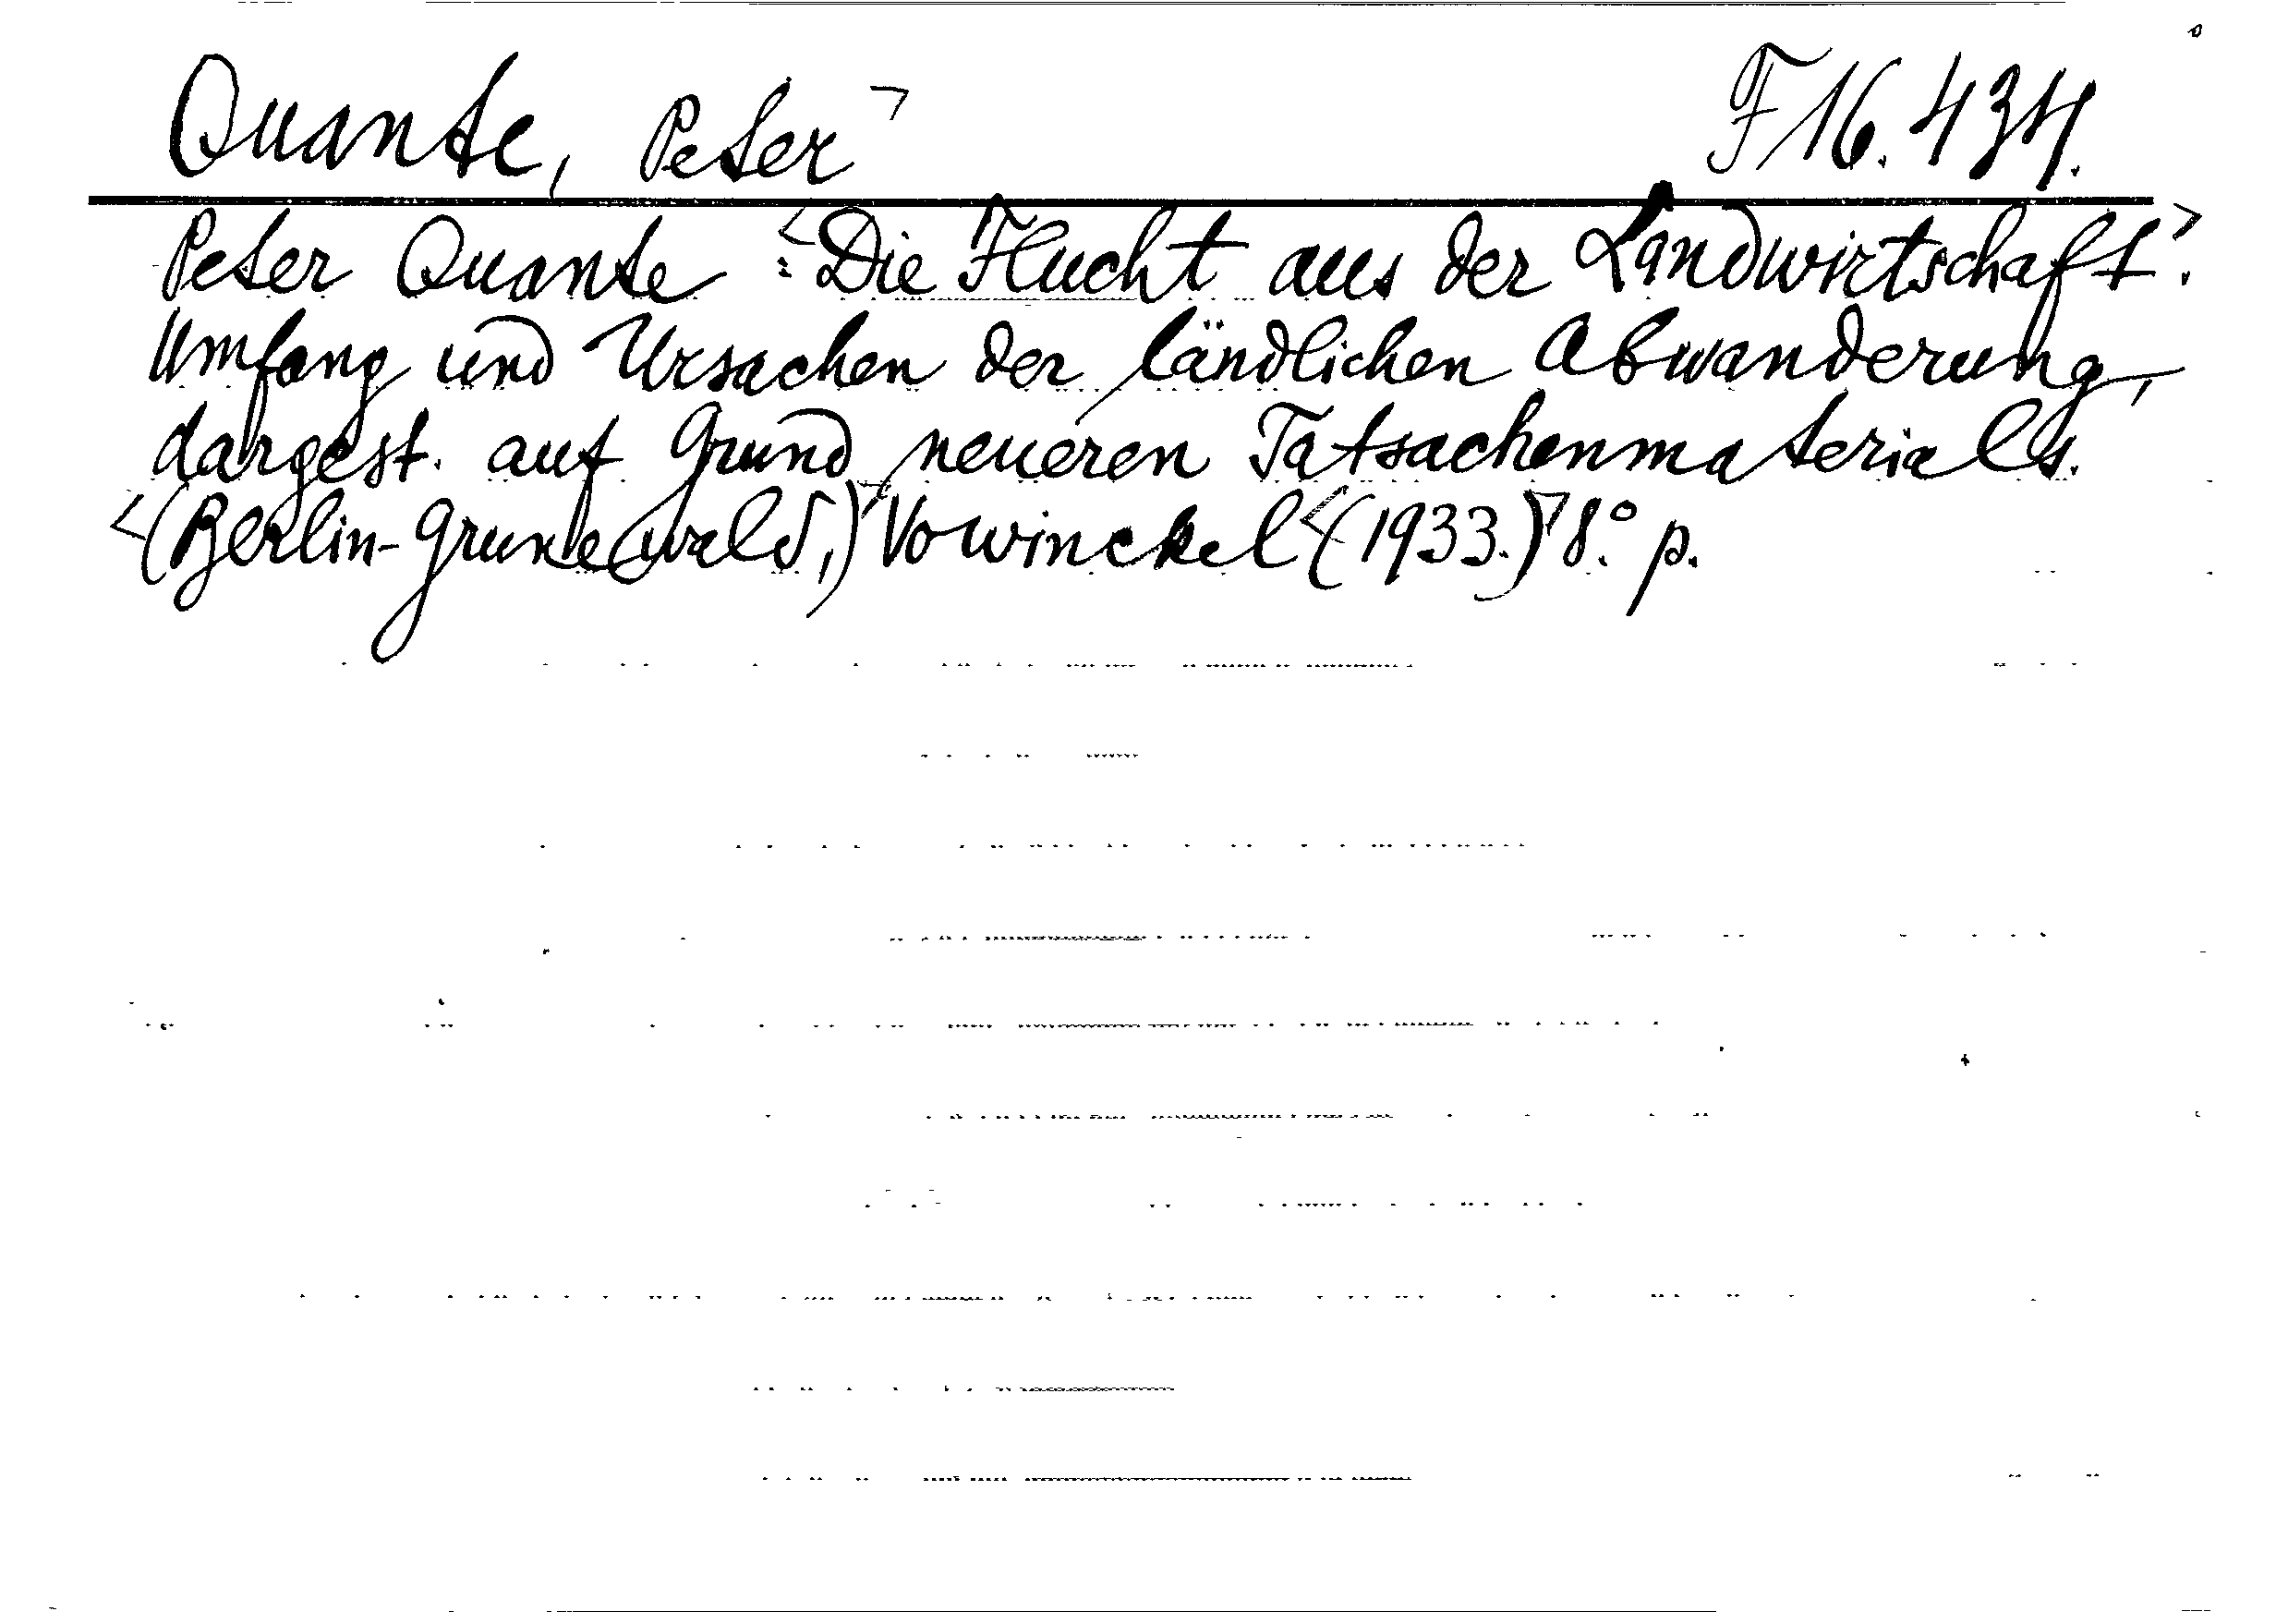 Quante, Peter F 16.434.
Peter Quante : Die Flucht aus der Landwirtschaft.
Umfang und Ursachen der ländlichen Abwanderung,
dargest. auf Grund neueren Tatsachenmaterials.
(Berlin-Grunewald,) Vowinckel (1933.) 8.° p.